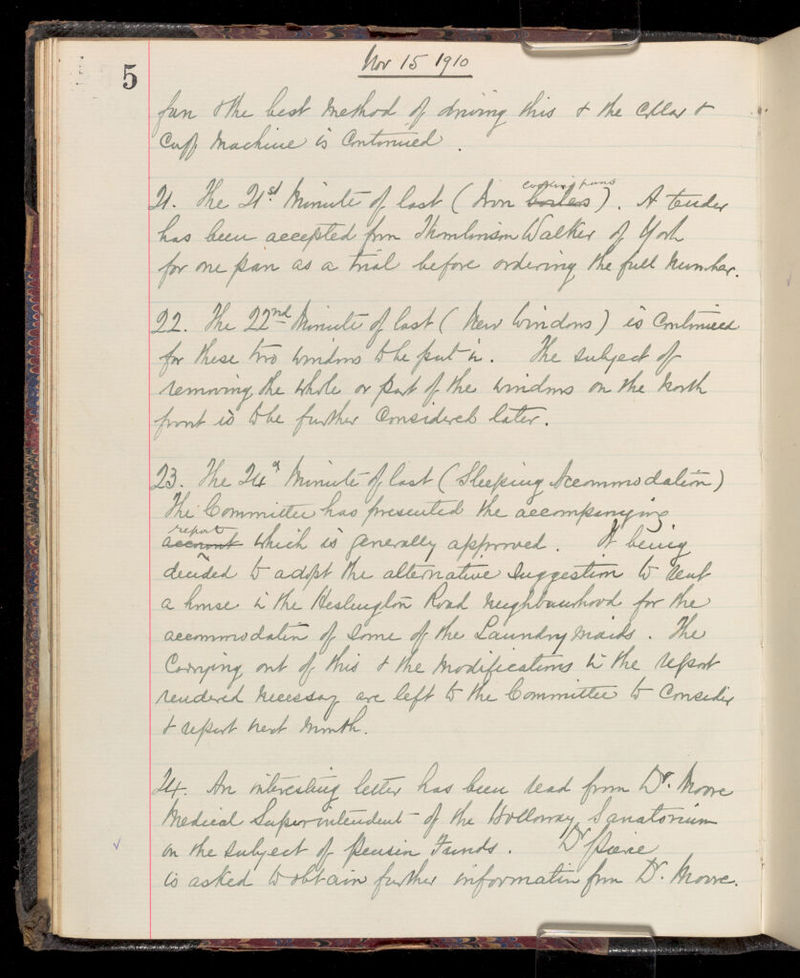 5
Nov 15 1910
fan & the best method of driving this & the Collar &
Cuff Machine is Continued.
21. The 21st Minute of last (Iron boilers cooking pans). A tender
has been accepted from Thomlinson Walker of York
for one pan as a trial before ordering the full number.
22. The 22nd Minute of last (New Windows) is Continued
for these two windows to be put in. The subject of
removing the whole or part of the windows on the North
front is to be further Considered later.
23. The 24th Minute of last (Sleeping Accommodation)
The Committee has presented the accompanying
account report which is generally approved. It being
decided to adopt the alternative Suggestion to rent
a house in the Heslington Road neighbourhood for the
accommodation of some of the Laundry Maids. The
Carrying out of this & the Modifications in the report
rendered necessary are left to the Committee to Consider
& report next month.
24. An interesting letter has been read from Dr. Moore
Medical Superintendent of the Holloway Sanatorium
on the subject of Pension Funds. Dr Pierce
is asked to obtain further information from Dr. Moore.